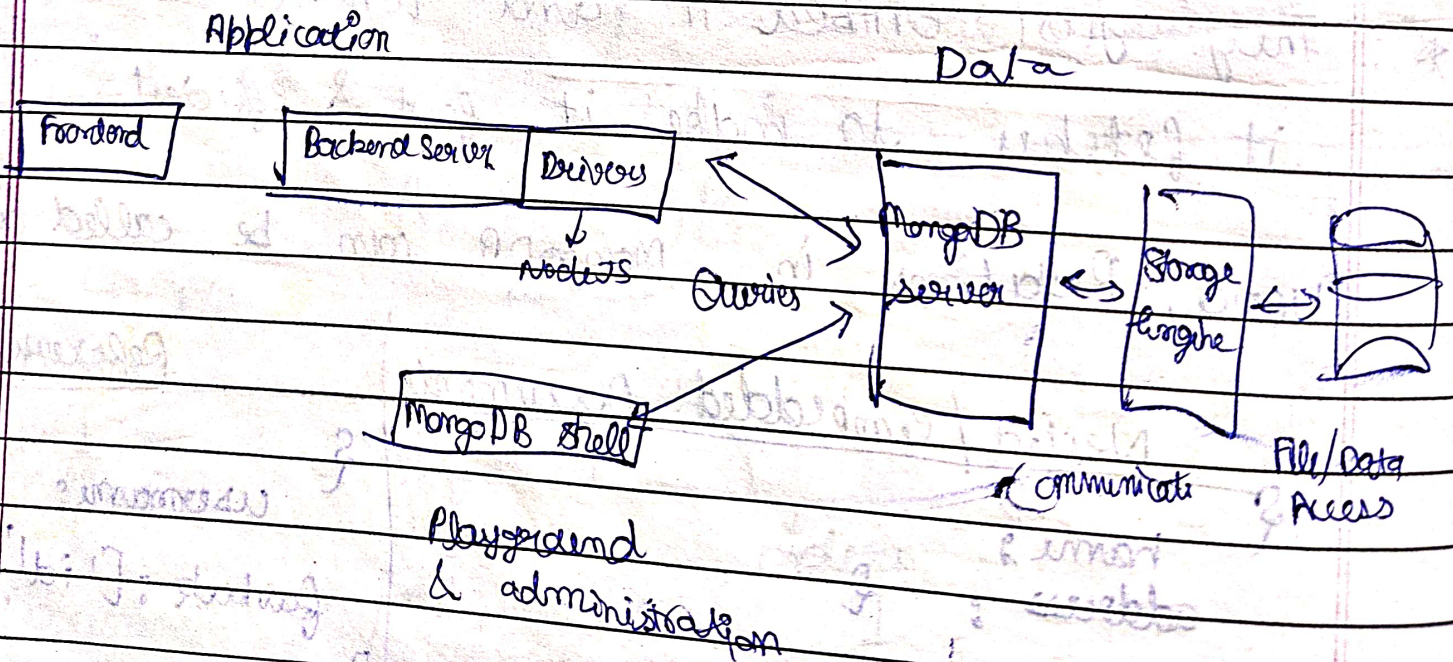 Application
Data
Frontend
Backend Server
Drivers
NodeJS
Queries
MongoDB
server
Storage
Engine
MongoDB shell
Communicate
File/Data
Access
Playground
& administration